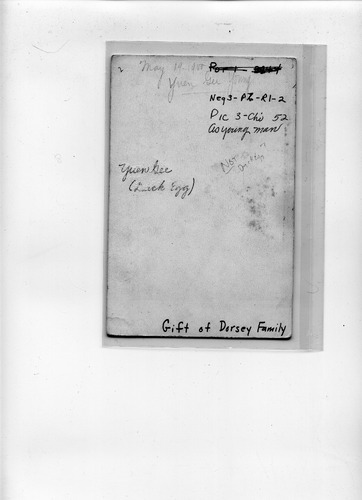 May 19
Yuen Gee
Neg 3-P6-R1-2
Pic 3-Chi 52
As young man
Not
Yuen Gee
(Duck Egg)
Gift of Dorsey Family